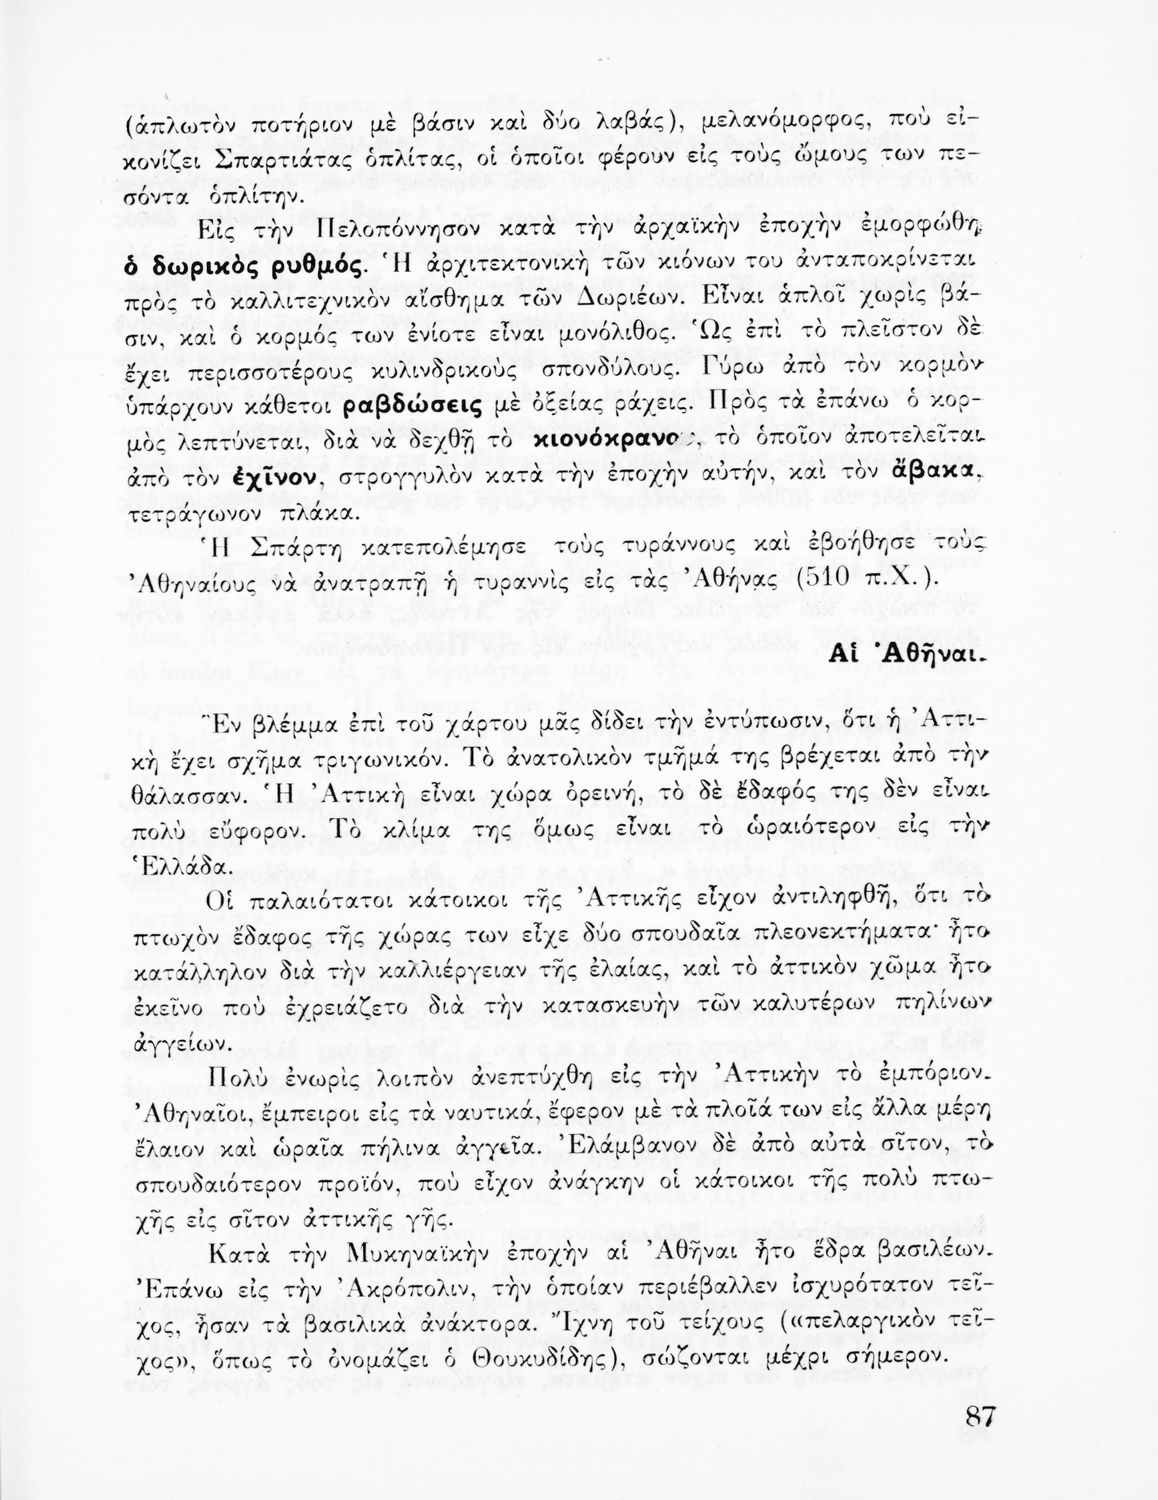 (ἁπλωτὸν ποτήριον μὲ βάσιν καὶ δύο λαβάς), μελανόμορφος, ποὺ εἰ-
κονίζει Σπαρτιάτας ὁπλίτας, οἱ ὁποῖοι φέρουν εἰς τοὺς ὤμους των πε-
σόντα ὁπλίτην.
Εἰς τὴν Πελοπόννησον κατὰ τὴν ἀρχαϊκὴν ἐποχὴν ἐμορφώθη
ὁ δωρικὸς ρυθμός. Ἡ ἀρχιτεκτονικὴ τῶν κιόνων του ἀνταποκρίνεται
πρὸς τὸ καλλιτεχνικὸν αἴσθημα τῶν Δωριέων. Εἶναι ἁπλοῖ χωρὶς βά-
σιν, καὶ ὁ κορμός των ἐνίοτε εἶναι μονόλιθος. Ὡς ἐπὶ τὸ πλεῖστον δὲ
ἔχει περισσοτέρους κυλινδρικοὺς σπονδύλους. Γύρω ἀπὸ τὸν κορμὸν
ὑπάρχουν κάθετοι ραβδώσεις μὲ ὀξείας ράχεις. Πρὸς τὰ ἐπάνω ὁ κορ-
μὸς λεπτύνεται, διὰ νὰ δεχθῇ τὸ κιονόκρανον, τὸ ὁποῖον ἀποτελεῖται
ἀπὸ τὸν ἐχῖνον, στρογγυλὸν κατὰ τὴν ἐποχὴν αὐτήν, καὶ τὸν ἄβακα,
τετράγωνον πλάκα.
Ἡ Σπάρτη κατεπολέμησε τοὺς τυράννους καὶ ἐβοήθησε τοὺς
Ἀθηναίους νὰ ἀνατραπῇ ἡ τυραννὶς εἰς τὰς Ἀθήνας (510 π.Χ.).
Αἱ Ἀθῆναι.
Ἓν βλέμμα ἐπὶ τοῦ χάρτου μᾶς δίδει τὴν ἐντύπωσιν, ὅτι ἡ Ἀττι-
κὴ ἔχει σχῆμα τριγωνικόν. Τὸ ἀνατολικὸν τμῆμά της βρέχεται ἀπὸ τὴν
θάλασσαν. Ἡ Ἀττικὴ εἶναι χώρα ὀρεινή, τὸ δὲ ἔδαφός της δὲν εἶναι
πολὺ εὔφορον. Τὸ κλίμα της ὅμως εἶναι τὸ ὡραιότερον εἰς τὴν
Ἑλλάδα.
Οἱ παλαιότατοι κάτοικοι τῆς Ἀττικῆς εἶχον ἀντιληφθῆ, ὅτι τὸ
πτωχὸν ἔδαφος τῆς χώρας των εἶχε δύο σπουδαῖα πλεονεκτήματα· ἦτο
κατάλληλον διὰ τὴν καλλιέργειαν τῆς ἐλαίας, καὶ τὸ ἀττικὸν χῶμα ἦτο
ἐκεῖνο ποὺ ἐχρειάζετο διὰ τὴν κατασκευὴν τῶν καλυτέρων πηλίνων
ἀγγείων.
Πολὺ ἐνωρὶς λοιπὸν ἀνεπτύχθη εἰς τὴν Ἀττικὴν τὸ ἐμπόριον.
Ἀθηναῖοι, ἔμπειροι εἰς τὰ ναυτικά, ἔφερον μὲ τὰ πλοῖά των εἰς ἄλλα μέρη
ἔλαιον καὶ ὡραῖα πήλινα ἀγγεῖα. Ἐλάμβανον δὲ ἀπὸ αὐτὰ σῖτον, τὸ
σπουδαιότερον προϊόν, ποὺ εἶχον ἀνάγκην οἱ κάτοικοι τῆς πολὺ πτω-
χῆς εἰς σῖτον ἀττικῆς γῆς.
Κατὰ τὴν Μυκηναϊκὴν ἐποχὴν αἱ Ἀθῆναι ἦτο ἕδρα βασιλέων.
Ἐπάνω εἰς τὴν Ἀκρόπολιν, τὴν ὁποίαν περιέβαλλεν ἰσχυρότατον τεῖ-
χος, ἦσαν τὰ βασιλικὰ ἀνάκτορα. Ἴχνη τοῦ τείχους («πελαργικὸν τεῖ-
χος», ὅπως τὸ ὀνομάζει ὁ Θουκυδίδης), σώζονται μέχρι σήμερον.
87